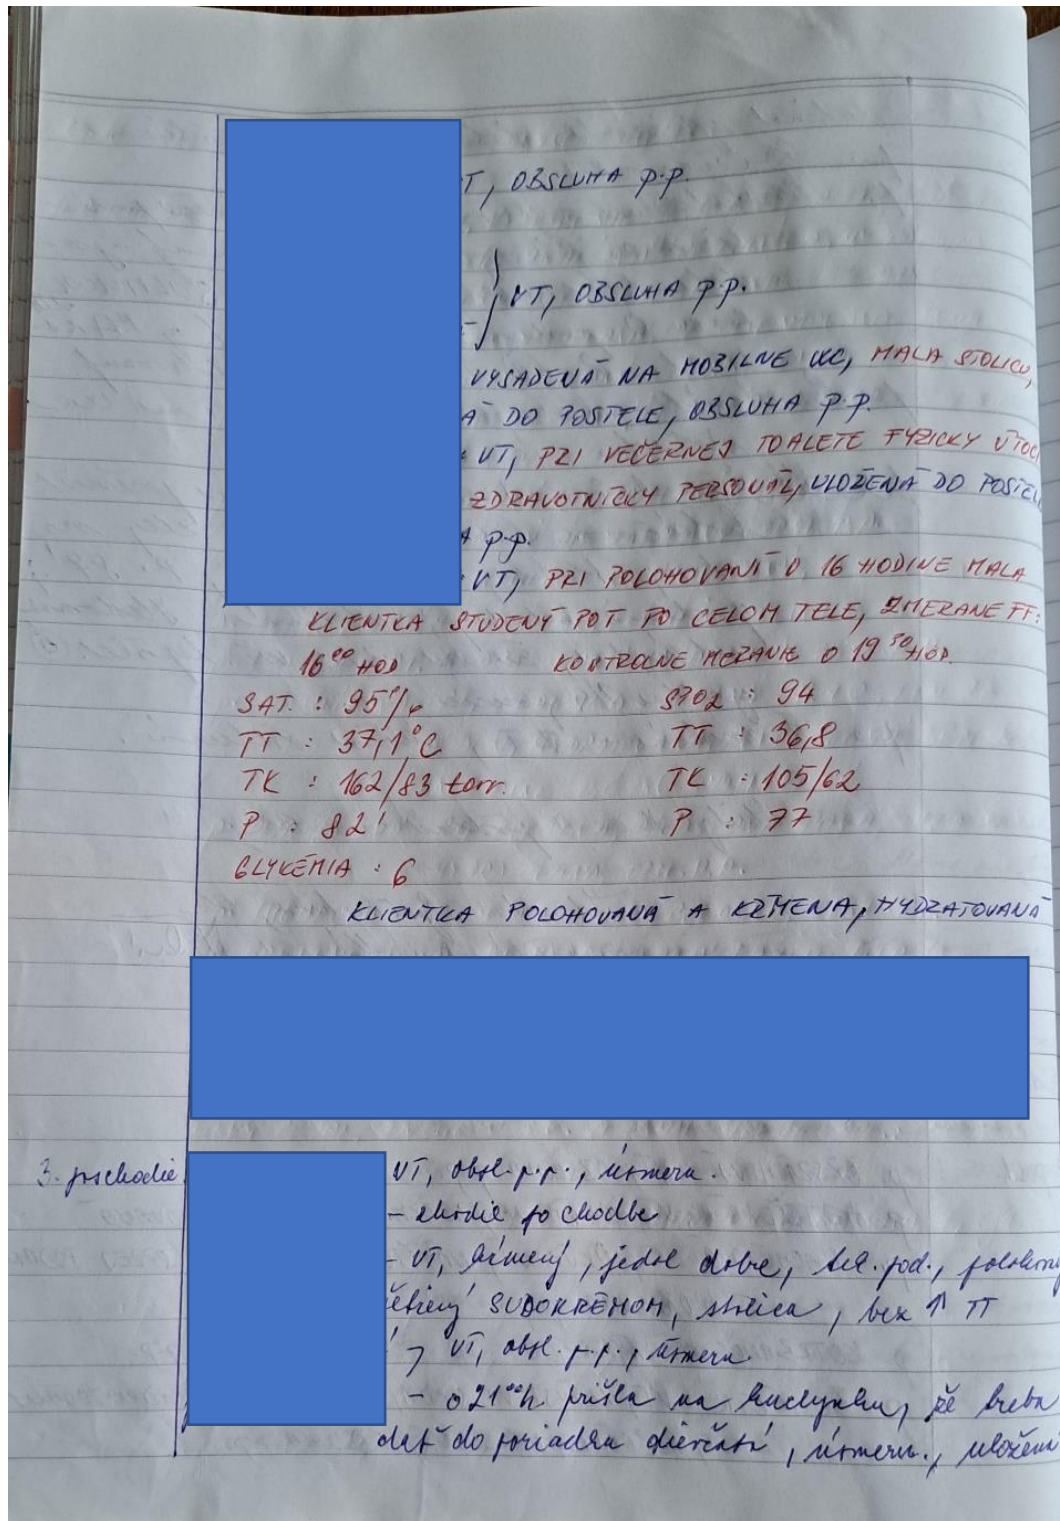 T, OBSLUHA p.p.
VT, OBSLUHA p.p.
VYSADENÁ NA MOBILNE WC, MALA STOLICU,
Á DO POSTELE, OBSLUHA p.p.
VT, PRI VEČERNEJ TOALETE FYZICKY ÚTOČ
ZDRAVOTNÍCKY PERSONÁL, ULOŽENÁ DO POSTEL
A p.p.
VT, PRI POLOHOVANÍ O 16 HODINE MALA
KLIENTKA STUDENÝ POT PO CELOM TELE, ZMERANE FF:
16⁰⁰ HOD KONTROLNE MERANIE O 19³⁰ HOD.
SAT. : 95% SPO2 : 94
TT : 37,1°C TT : 36,8
TK : 162/83 torr. TK : 105/62
P : 82' P : 77
GLYKÉMIA : 6
KLIENTKA POLOHOVANÁ A KŔMENA, HYDRATOVANÁ
3. poschodie VT, obsl. p.p., úsmern.
- chodil po chodbe
- VT, kŕmený, jedol dobre, tek. pod.,
SUDOKRÉMOM, stolica, bez ↑ TT
VT, obsl. p.p., úsmern.
- o 21⁰⁰h prišla na kuchynku, že treba
dať do poriadku dievčatá, úsmern., uložená